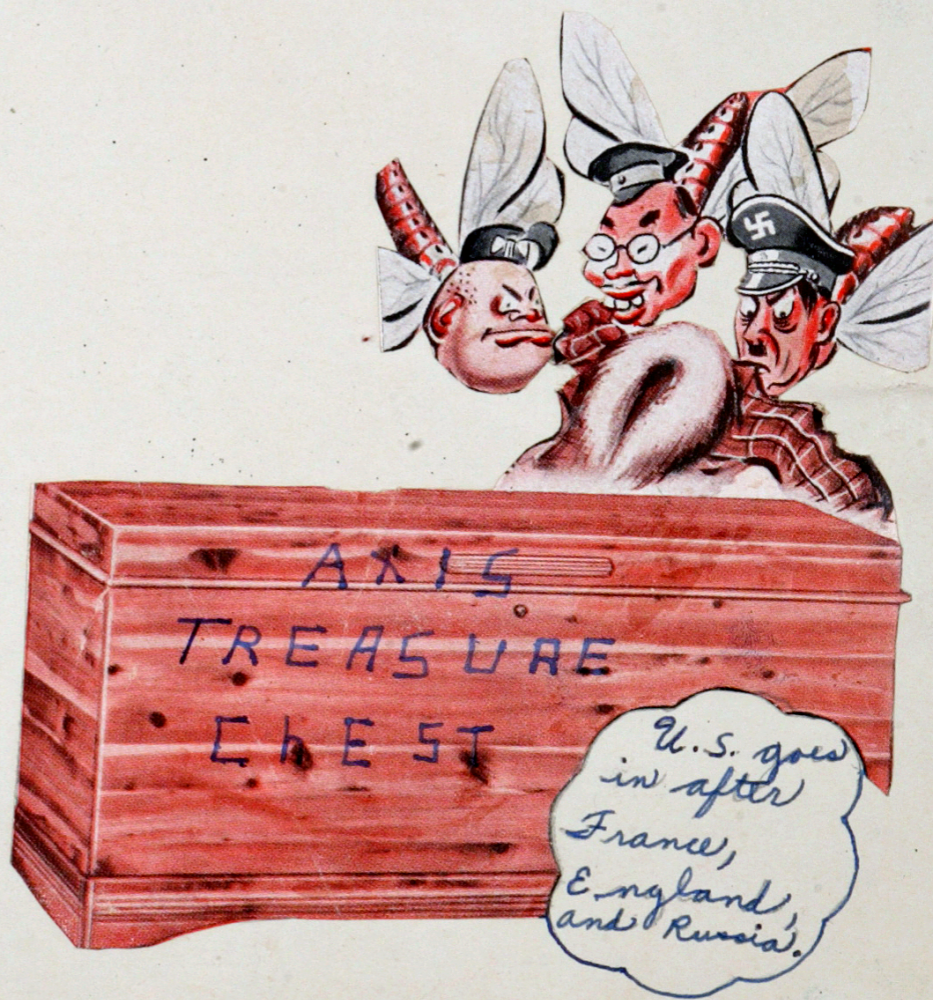 AXIS
TREASURE
ChEST
U.S. goes
in after
France,
England,
and Russia.